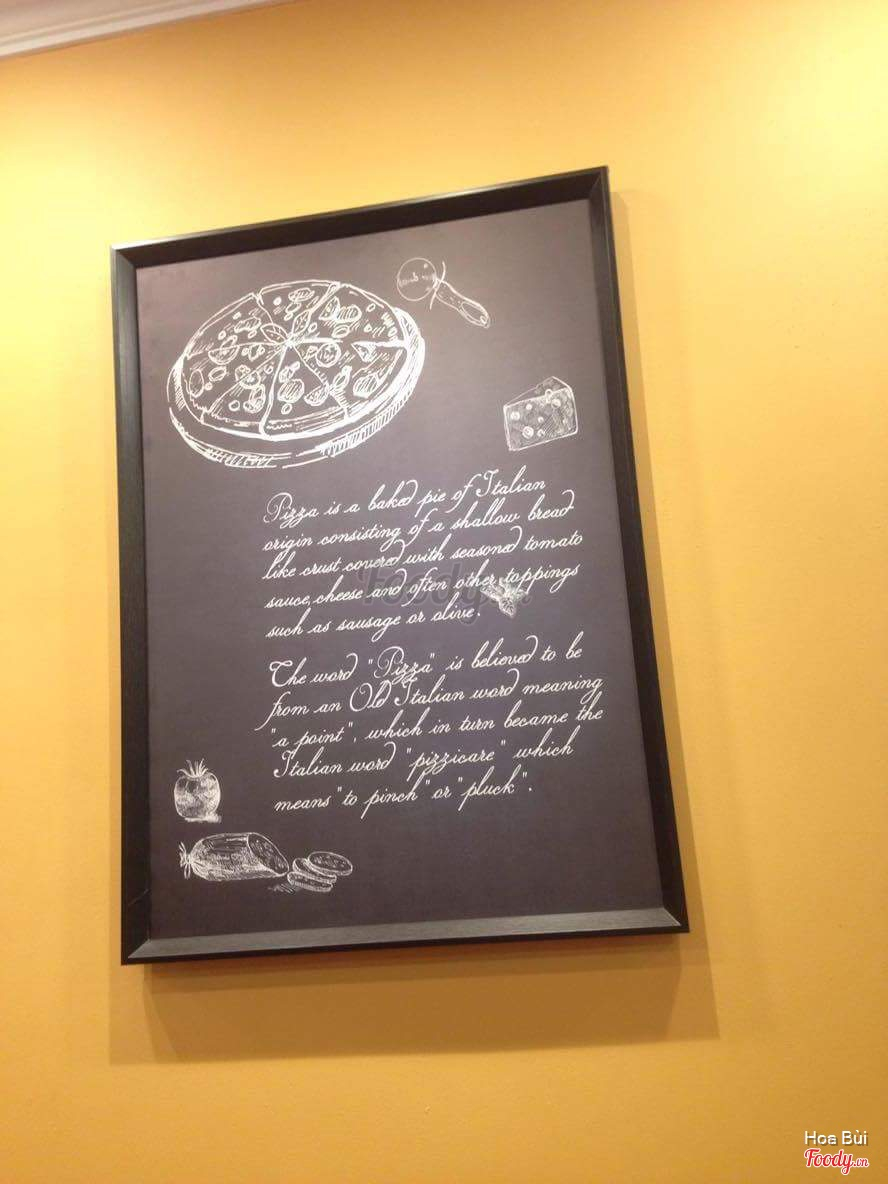 Pizza is a baked pie of Italian
origin consisting of a shallow bread
like crust covered with seasoned tomato
sauce, cheese and often other toppings
such as sausage or olive.
The word "Pizza" is believed to be
from an Old Italian word meaning
"a point", which in turn became the
Italian word "pizzicare" which
means "to pinch" or "pluck".
Foody.vn
Hoa Bùi
Foody.vn